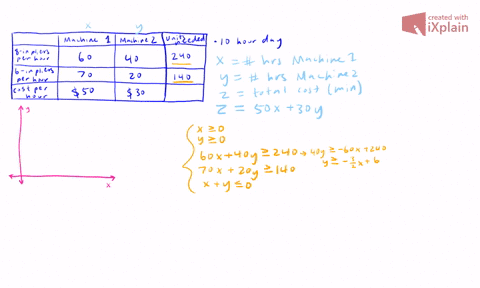 x y
Machine 1 Machine 2 Units Needed
8-in pliers per hour 60 40 240
6-in pliers per hour 70 20 140
cost per hour $50 $30
• 10 hour day
x = # hrs Machine 1
y = # hrs Machine 2
z = total cost (min)
z = 50x + 30y
x ≥ 0
y ≥ 0
60x + 40y ≥ 240 → 40y ≥ -60x + 240
y ≥ -3/2x + 6
70x + 20y ≥ 140
x + y ≤ 0
y
x
created with
iXplain